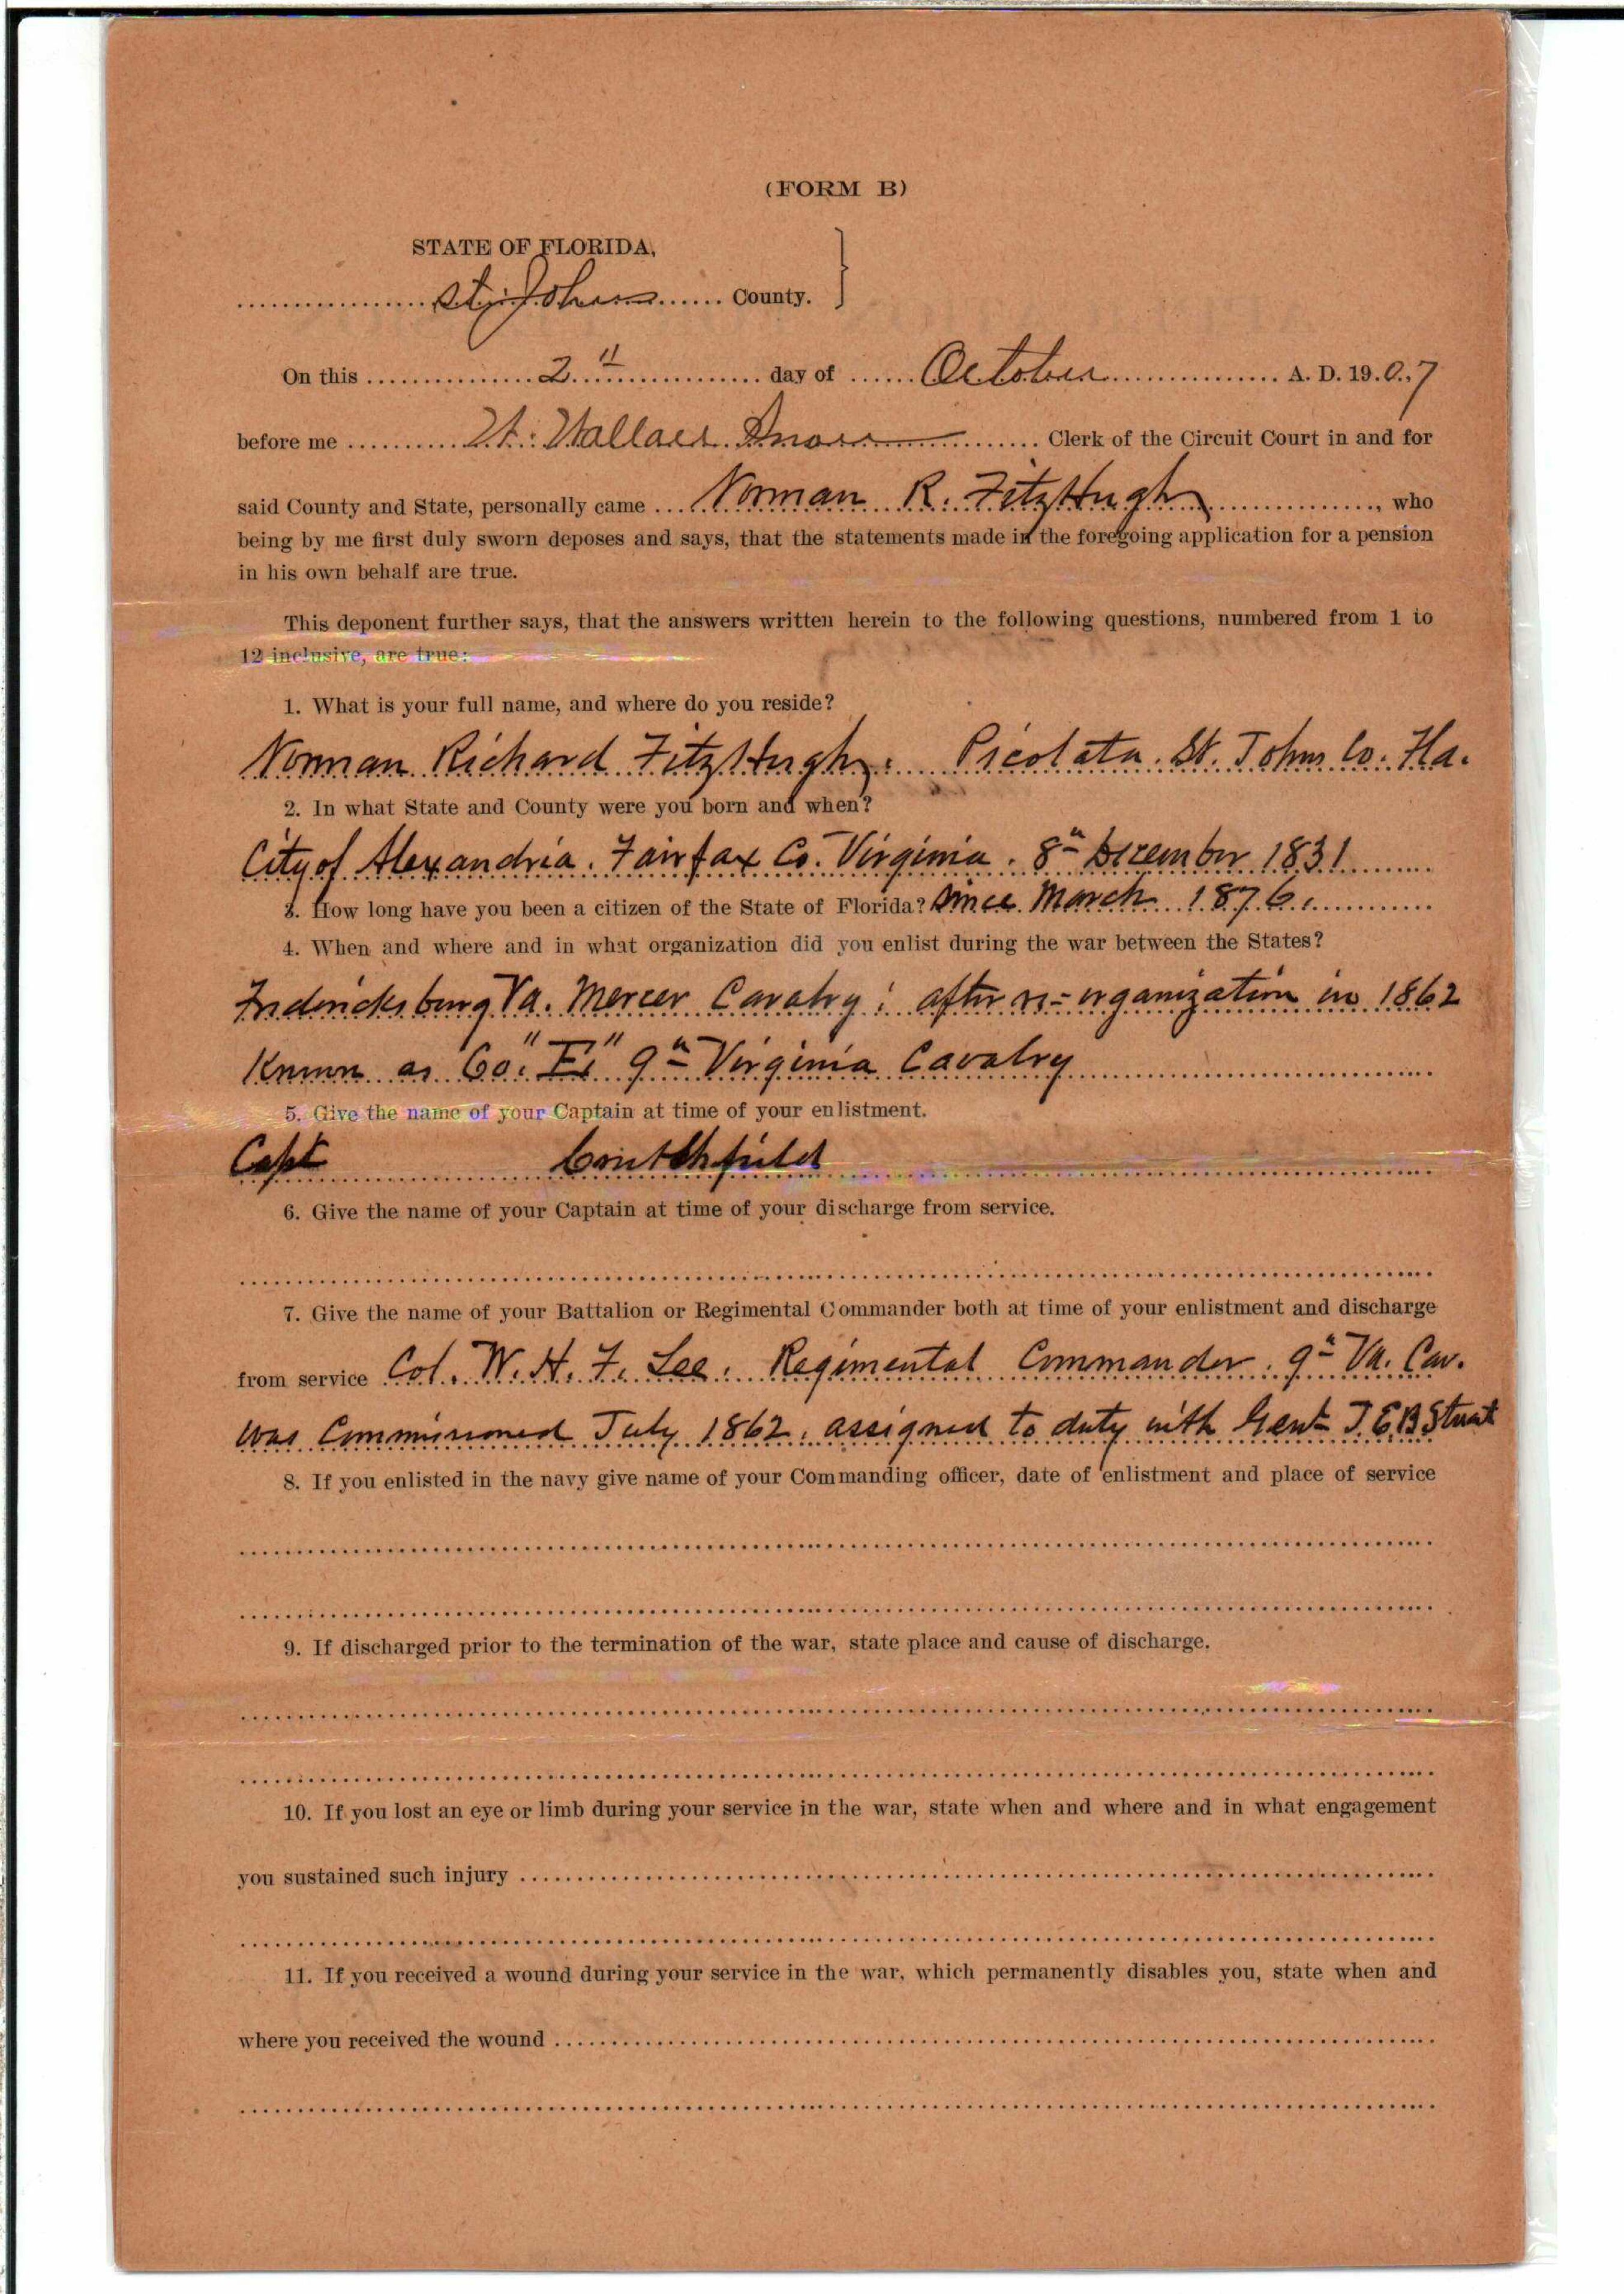 (FORM B)
STATE OF FLORIDA,
St. Johns County.
On this 2" day of October A. D. 1907
before me Wallace Clerk of the Circuit Court in and for
said County and State, personally came Norman R. FitzHugh, who
being by me first duly sworn deposes and says, that the statements made in the foregoing application for a pension
in his own behalf are true.
This deponent further says, that the answers written herein to the following questions, numbered from 1 to
12 inclusive, are true:
1. What is your full name, and where do you reside?
Norman Richard FitzHugh. Picolata. St. Johns Co. Fla.
2. In what State and County were you born and when?
City of Alexandria. Fairfax Co. Virginia. 8th December 1831
3. How long have you been a citizen of the State of Florida? Since March 1876.
4. When and where and in what organization did you enlist during the war between the States?
Fredericksburg Va. Mercer Cavalry; after re-organization in 1862
Known as Co. "E" 9th Virginia Cavalry
5. Give the name of your Captain at time of your enlistment.
Capt Crutchfield
6. Give the name of your Captain at time of your discharge from service.
7. Give the name of your Battalion or Regimental Commander both at time of your enlistment and discharge
from service Col. W. H. F. Lee. Regimental Commander. 9th Va. Cav.
was Commissioned July 1862. assigned to duty with Genl J. E. B Stuart
8. If you enlisted in the navy give name of your Commanding officer, date of enlistment and place of service
9. If discharged prior to the termination of the war, state place and cause of discharge.
10. If you lost an eye or limb during your service in the war, state when and where and in what engagement
you sustained such injury
11. If you received a wound during your service in the war, which permanently disables you, state when and
where you received the wound